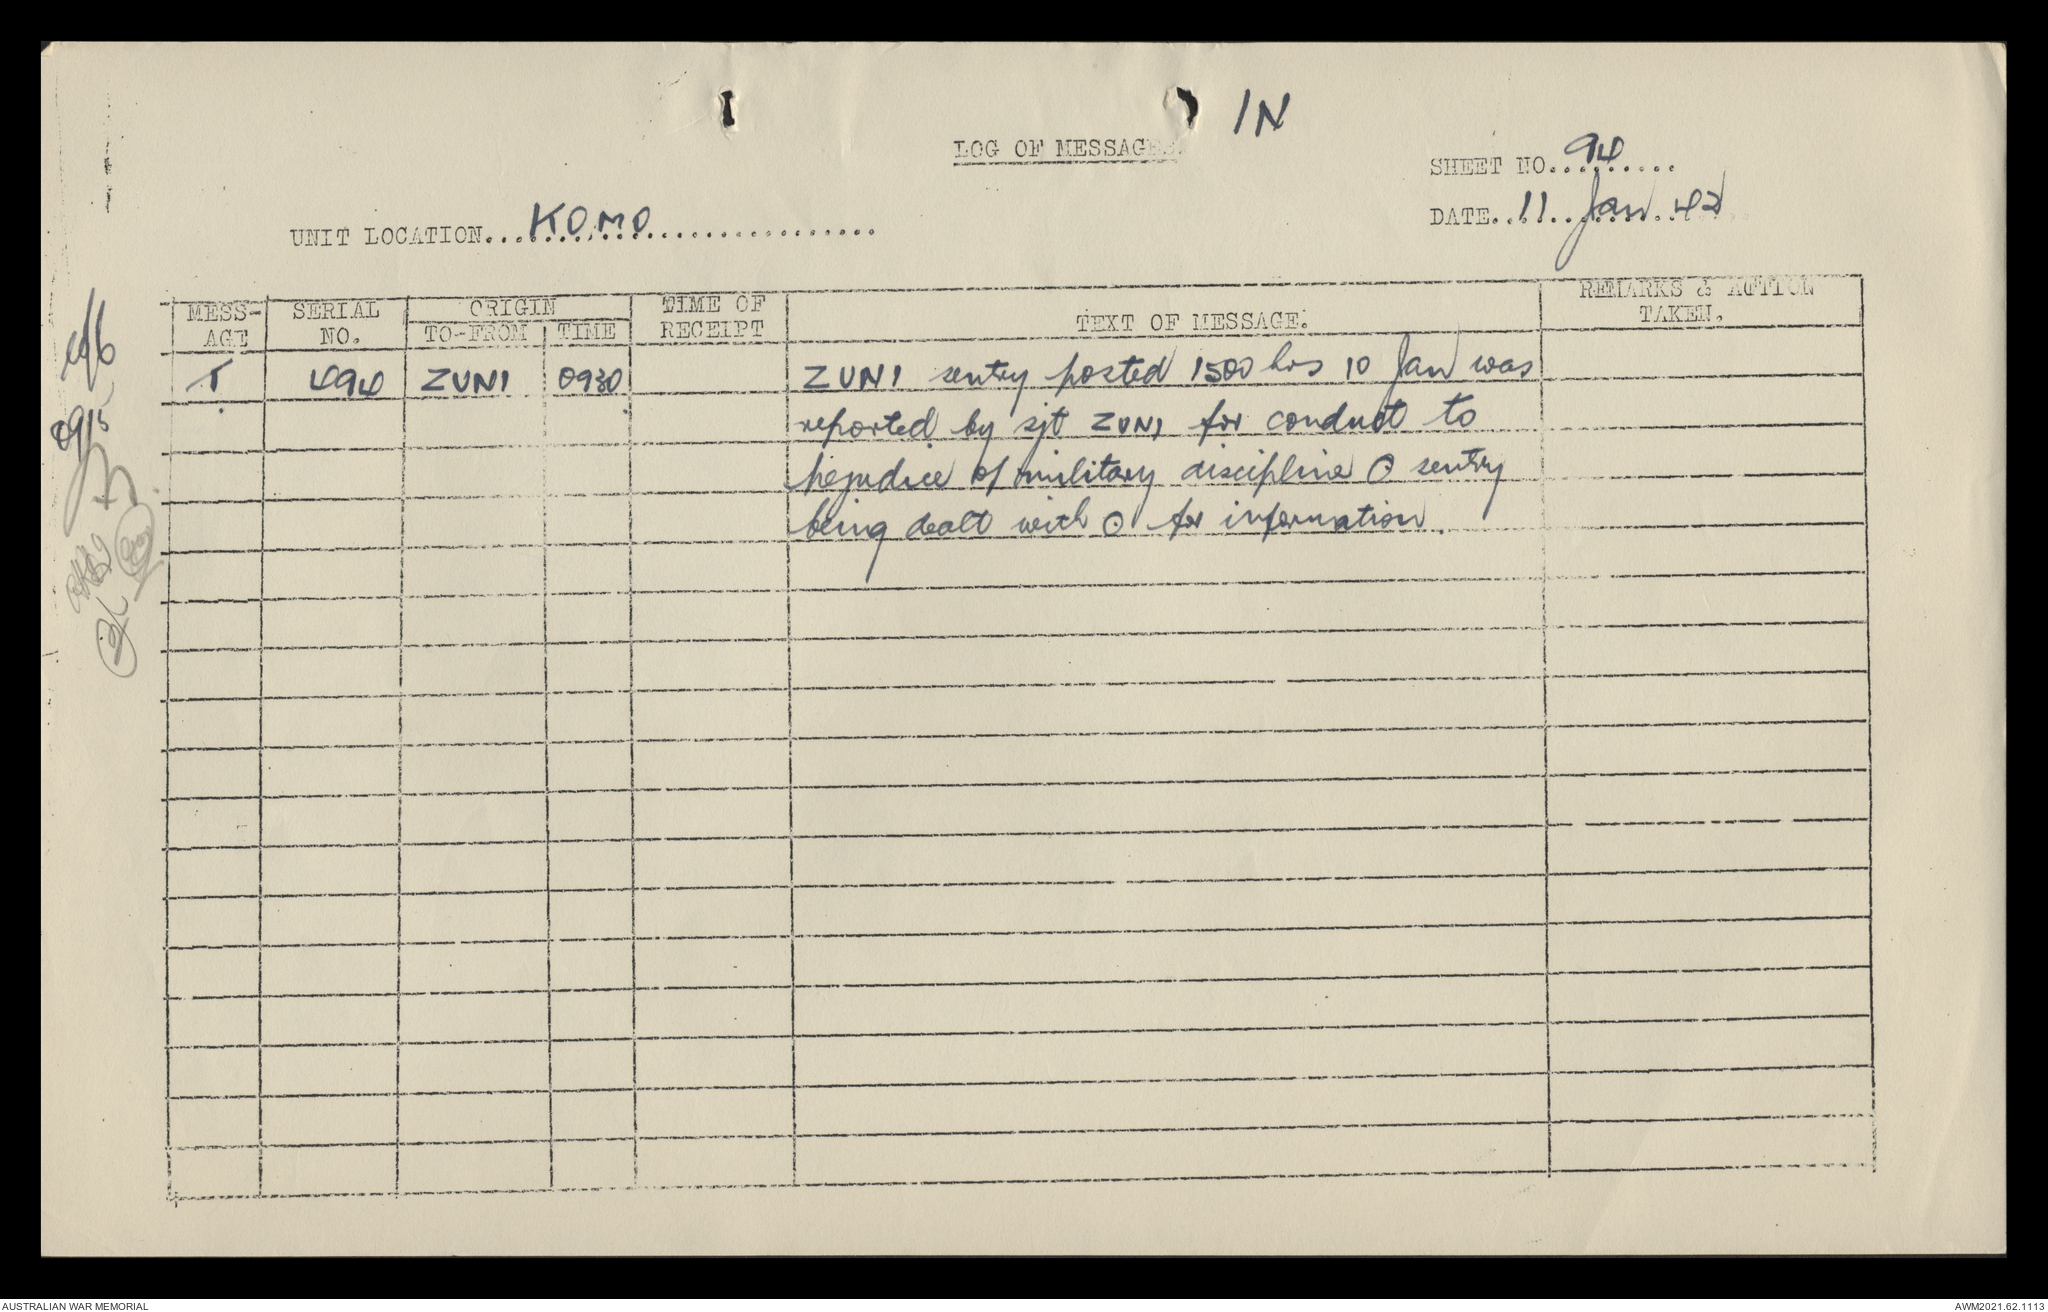 IN
LOG OF MESSAGES.
SHEET NO. 94
DATE. 11 Jan 42
UNIT LOCATION. KOMO
MESS- SERIAL ORIGIN TIME OF REMARKS & ACTION
AGE NO. TO-FROM TIME RECEIPT TEXT OF MESSAGE. TAKEN.
T 494 ZUNI 0930 ZUNI sentry posted 1500 hrs 10 Jan was
reported by sjt ZUNI for conduct to
prejudice of military discipline ⊙ sentry
being dealt with ⊙ for information.
0915
AUSTRALIAN WAR MEMORIAL
AWM2021.62.1113